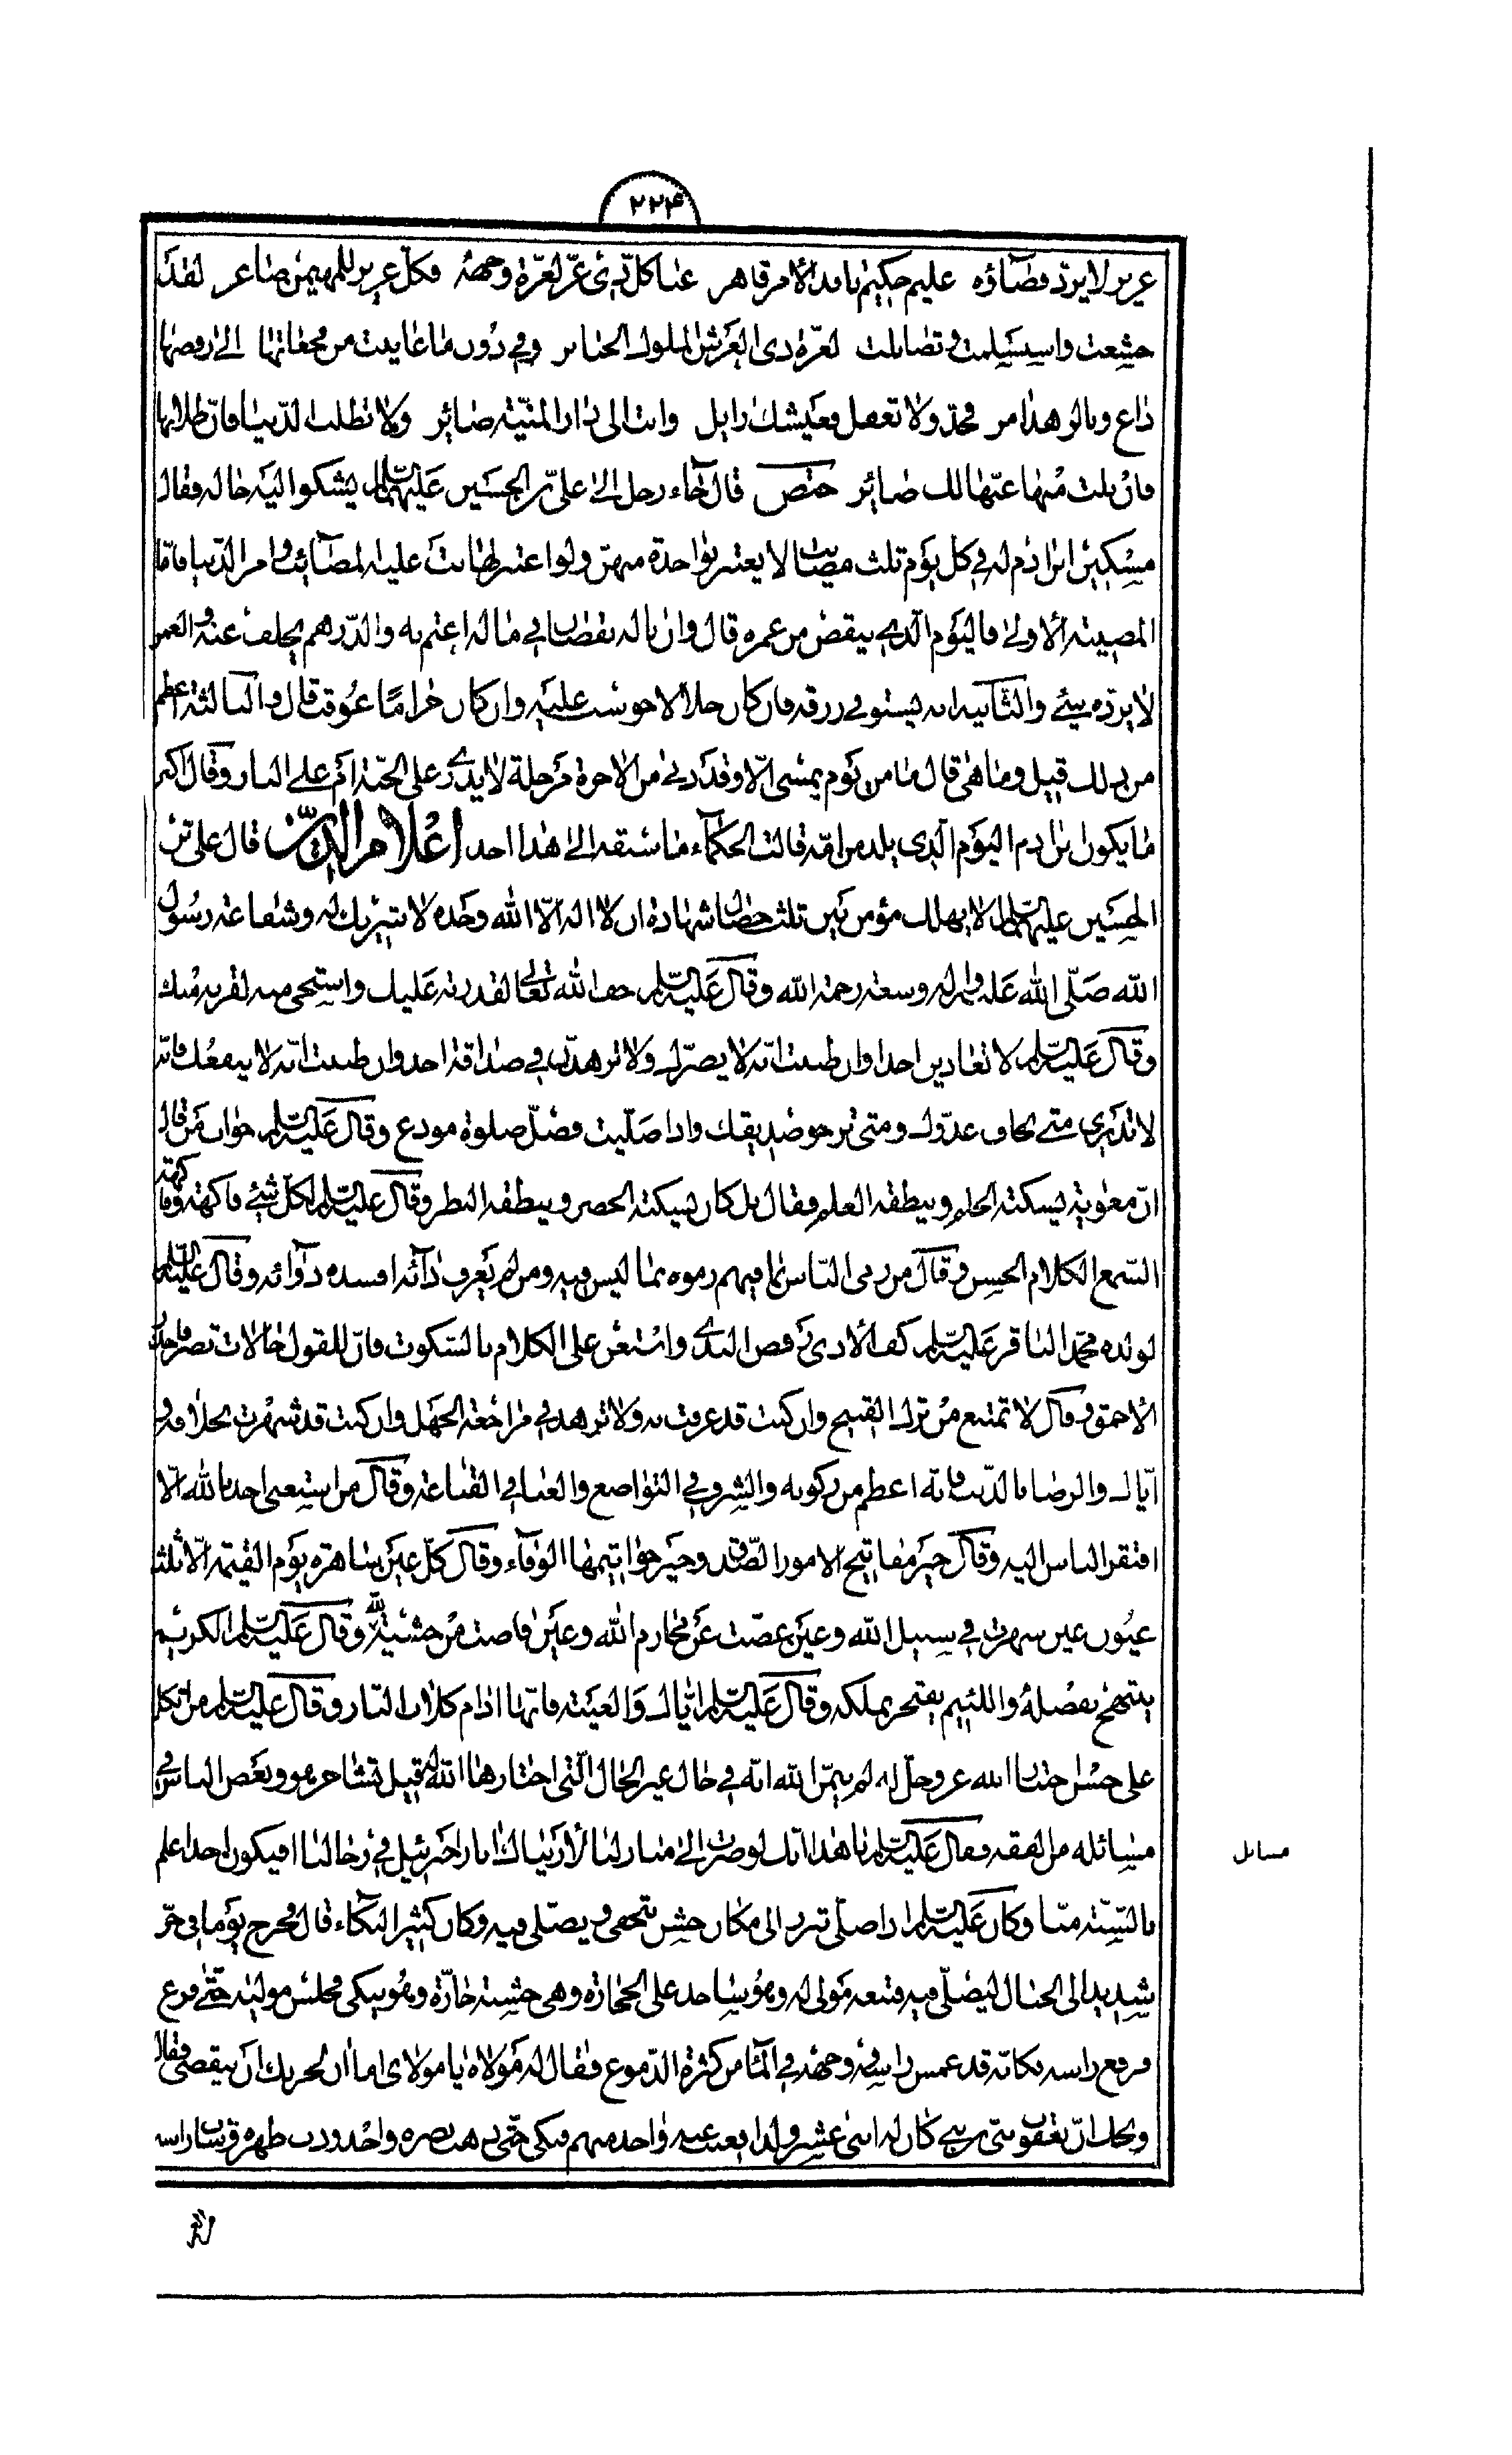 ۲۲۴
عزيز لا يردّ قضاؤه عليم حكيم نافد الأمر قاهر عنا كلّ ذي عزّ لعزّة وجهه فكلّ عزيز للمهيمن صاغر لقد
خشعت واستسلمت وتضائلت لعزّة ذي العرش الملوك الجبابر وفي دون ما عاينت من فجعاتها إلى رفضها
داع وبالزهد آمر فجدّ ولا تغفل فعيشك زايل وانت إلى دار المنيّة صائر ولا تطلب الدّنيا فانّ طلابها
فان نلت منها غبّها لك ضائر ختص قال جاء رجل إلى عليّ بن الحسين عليهما السلام يشكو اليه حاله فقال
مسكين ابن ادم له في كلّ يوم ثلث مصائب لا يعتبر بواحدة منهنّ ولو اعتبر لهانت عليه المصائب وامر الدّنيا فامّا
المصيبة الأولى فاليوم الّذي ينقص من عمره قال وان ناله نقصان في ماله اغتم به والدّرهم يخلف عنه والعمر
لا يردّه شيئ والثّانية انه يستوفي رزقه فان كان حلالا حوسب عليه وان كان حراما عوقب قال والثالثة اعظم
من ذلك قيل وما هي قال ما من يوم يمسي الّا وقد دنى من الاخرة مرحلة لا يدري على الجنّة ام على النار وقال اكبر
ما يكون ابن ادم اليوم الّذي يلد من امّه قالت الحكماء ما سبقه إلى هذا احد اعلام الدّين قال عليّ بن
الحسين عليهما السلام لا يهلك مؤمن بين ثلث خصال شهادة ان لا اله الّا الله وحده لا شريك له وشفاعة رسول
الله صلّى الله عليه واله وسعة رحمة الله وقال عليه السلام خف الله تعالى لقدرته عليك واستحي منه لقربه منك
وقال عليه السلام لا تعادينّ احدا وان ظننت انّه لا يضرّك ولا تزهدنّ في صداقة احد وان ظننت انّه لا ينفعك فانّه
لا تدري متى تخاف عدوّك ومتى ترجو صديقك واذا صلّيت فصلّ صلوة مودع وقال عليه السلام جواب من قال
انّ معوية يسكته الحلم وينطقه العلم فقال بل كان يسكته الحصر وينطقه البطر وقال عليه السلام لكلّ شيئ فاكهة وفاكهة
السّمع الكلام الحسن وقال من رمى النّاس بما فيهم رموه بما ليس فيه ومن لم يعرف دائه افسده دوائه وقال عليه السلام
لولده محمّد الباقر عليه السلام كف الأذى رفض البذي واستعن على الكلام بالسّكوت فانّ للقول حالات تضر فاحذر
الاحمق وقال لا تمتنع من ترك القبيح وان كنت قد عرفت به ولا تزهد في مراجعة الجهل وان كنت قد شهرت بخلافه و
ايّاك والرضا بالذّنب فانّه اعظم من ركوبه والشرف في التواضع والغنا في القناعة وقال ما استغنى احد بالله الّا
افتقر الناس اليه وقال خير مفاتيح الامور الصّدق وخير خواتيمها الوفاء وقال كلّ عين ساهرة يوم القيمة الّا ثلث
عيون عين سهرت في سبيل الله وعين غضّت عن محارم الله وعين فاضت من خشية الله وقال عليه السلام الكريم
يبتهج بفضله واللئيم يفتخر بملكه وقال عليه السلام ايّاك والغيبة فانّها ادام كلاب النّار وقال عليه السلام من اتكل
على حسن اختيار الله عز وجل له لم يتمنّ الله انّه في حال غير الحال الّتي اختارها الله له قيل تشاجر هو وبعض الناس في
مسائله من الفقه فقال عليه السلام يا هذا انّك لو صرت إلى منازلنا لأريناك اثار جبرئيل في رحالنا افيكون احد اعلم
مسائل
بالسّنّة منّا وكان عليه السلام اذا صلّى تبرز إلى مكان خشن يتخفى ويصلّى فيه وكان كثير البكاء قال فخرج يوما في حرّ
شديد إلى الجبال ليصلّى فيه فتبعه مولى له وهو ساجد على الحجارة وهي خشنة حارّة وهو يبكي فجلس موليه حتّى فرغ
فرفع راسه فكانّه قد غمس راسه ووجهه في المآء من كثرة الدّموع فقال له مولاه يا مولاى اما ان لحزنك ان ينقضي فقال
ويحك انّ يعقوب نبي بن نبي كان له اثنى عشر ولدا فغيب عنه واحد منهم فبكى حتّى ذهب بصره واحدودب ظهره وشاب راسه